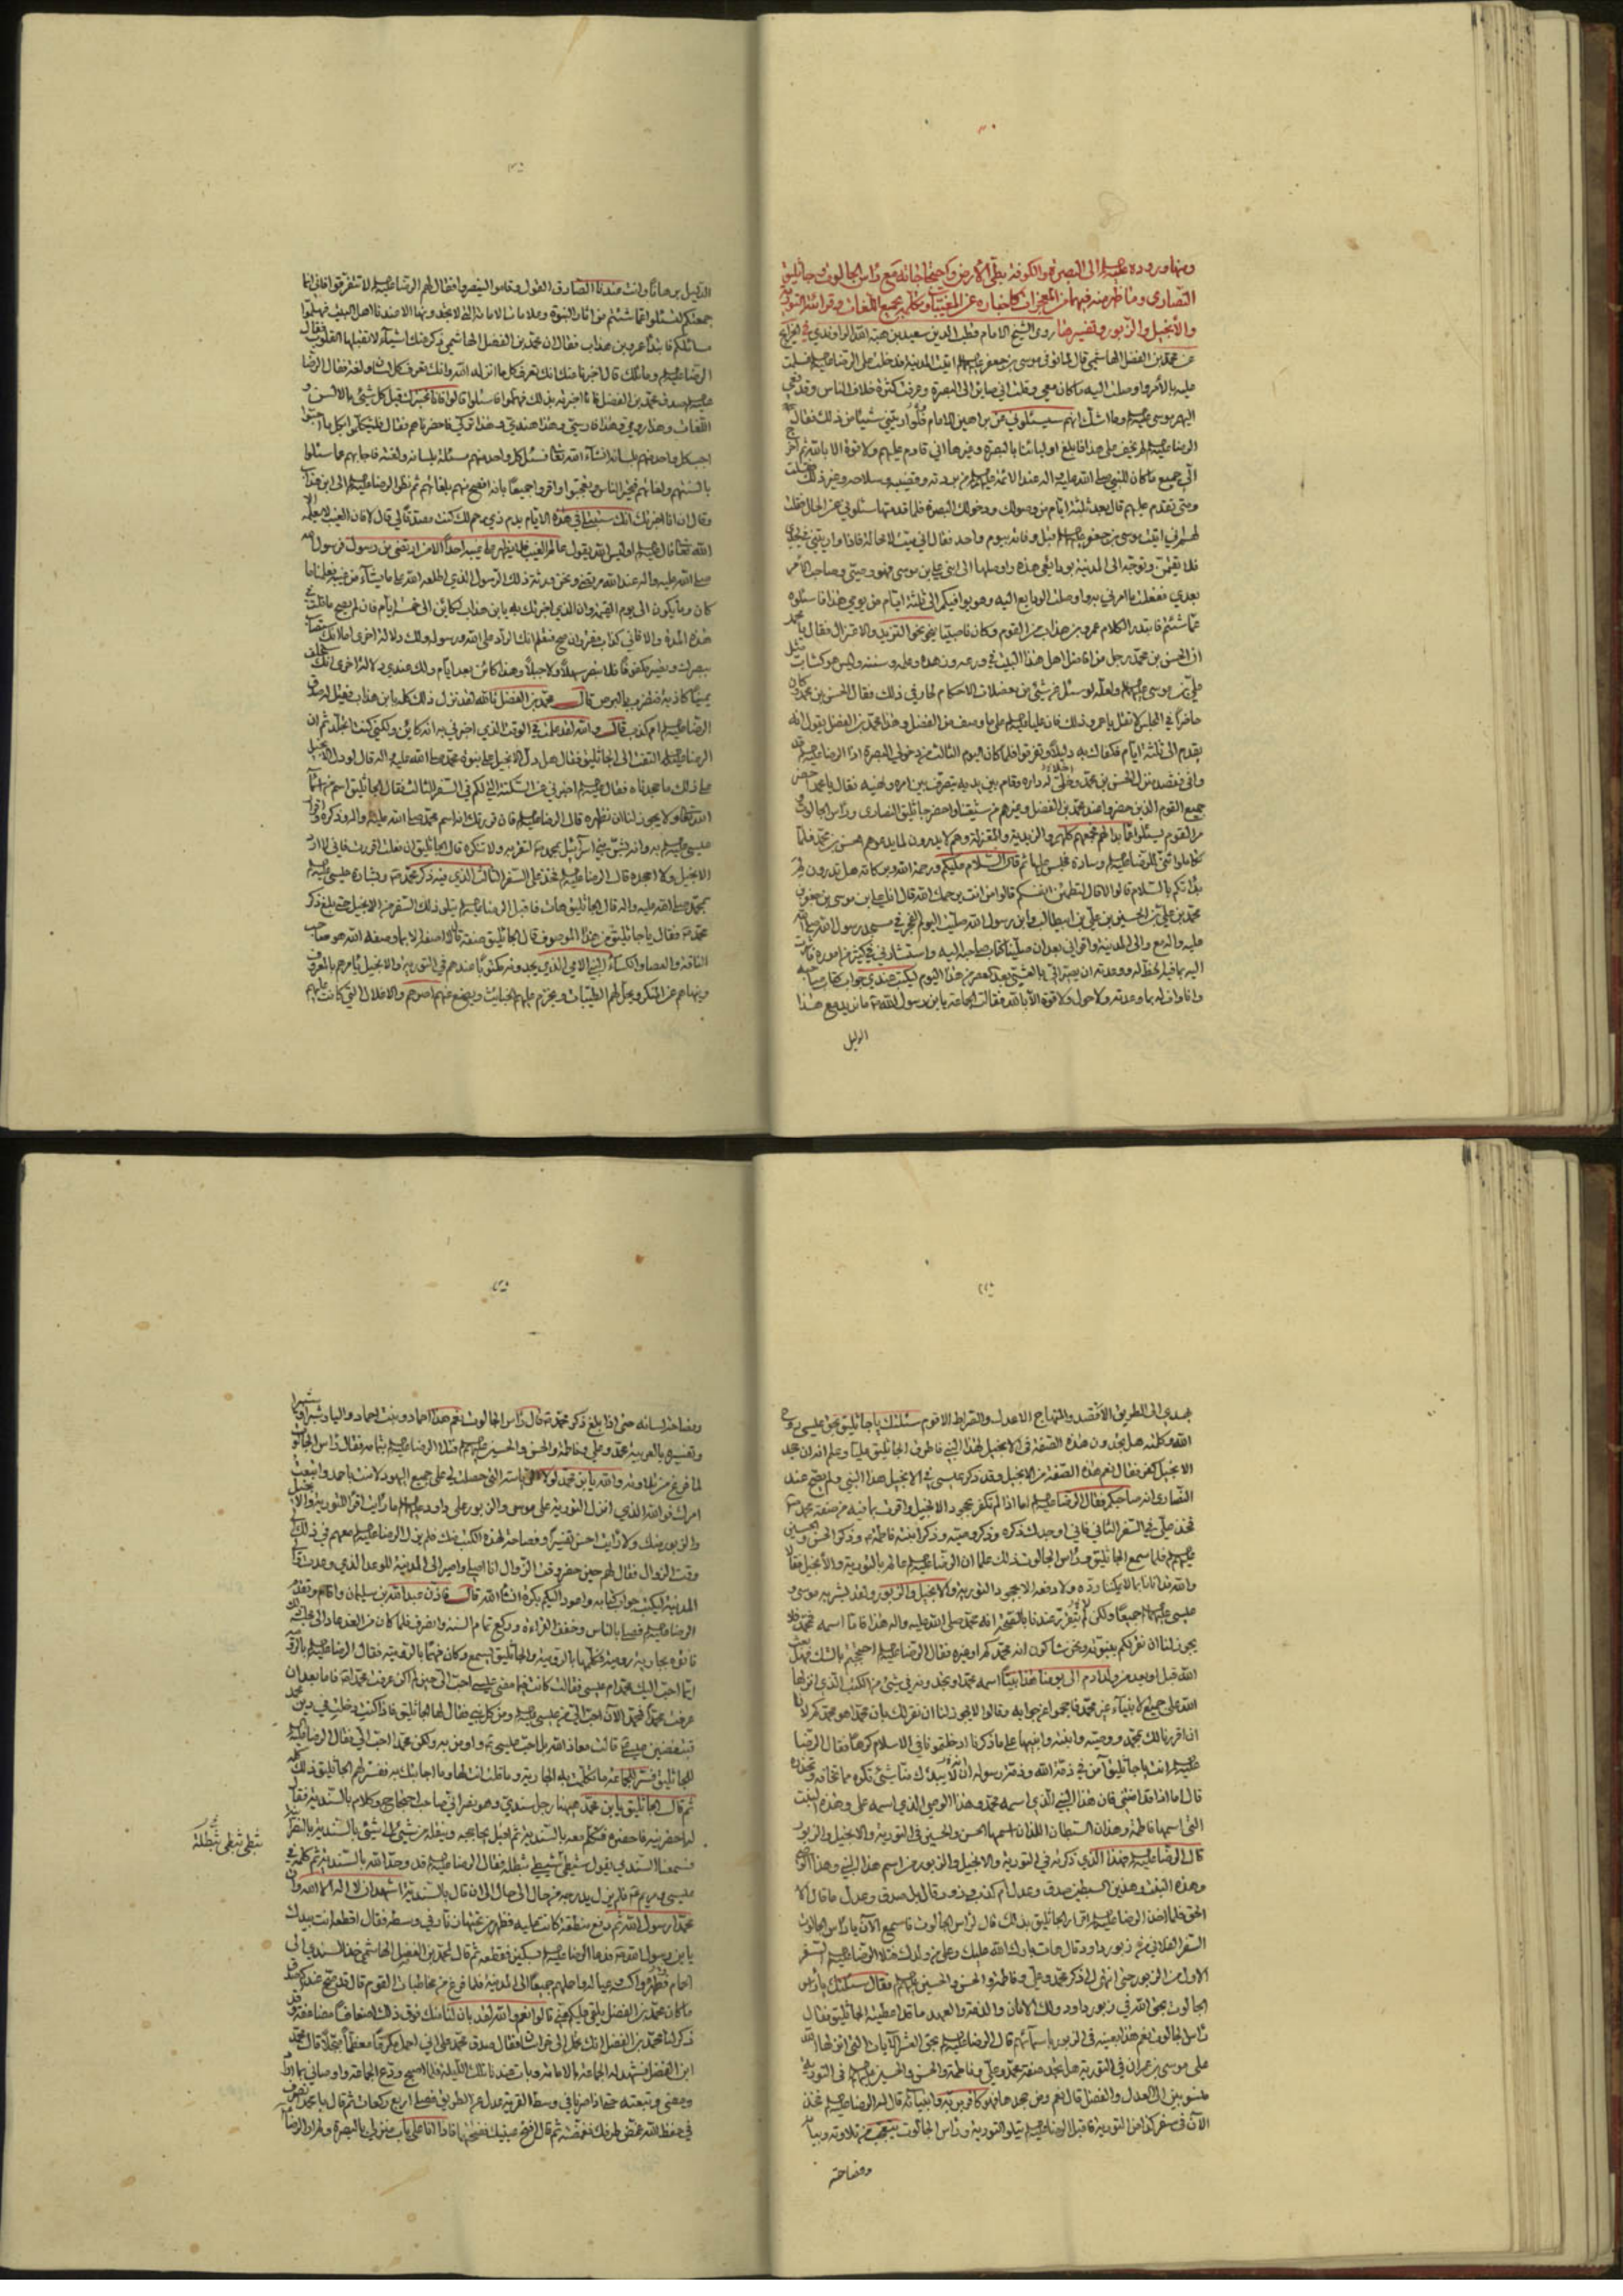 ومنها وروده عليه السلم الى البصرة والكوفة بطي الارض واحتجاجاته مع راس الجالوت وجاثليق
النصارى وما ظهر منه فيهما من المعجزات كاخباره عن المغيبات وتكلمه بجميع اللغات وقرائته التورية
والانجيل والزبور وتفسيرها روى الشيخ الامام قطب الدين سعيد بن هبة الله الراوندي في الخرايج
عن محمد بن الفضل الهاشمي قال لما توفي موسى بن جعفر عليهما السلم اتيت المدينة فدخلت على الرضا عليه السلم فسلمت
عليه بالامر واوصلت اليه ما كان معي وقلت اني صاير الى البصرة وعرفت كثرة خلاف الناس وقد نعي
اليهم موسى عليه السلم وما اشك انهم سيسئلوني عن براهين الامام فلو اريتني شيئا من ذلك فقال
الرضا عليه السلم لم يخف علي هذا فابلغ اوليائنا بالبصرة وغيرها اني قادم عليهم ولا قوة الا بالله ثم اخرج
الي جميع ما كان للنبي صلى الله عليه واله عند الائمة عليهم السلم من بردته وقضيبه وسلاحه وغير ذلك فقلت
ومتى تقدم عليهم قال بعد ثلثة ايام من وصولك ودخولك البصرة فلما قدمتها سئلوني عن الحال فقلت
لهم اني اتيت موسى بن جعفر عليهما السلم قبل وفاته بيوم واحد فقال اني ميت لا محالة فاذا واريتني في لحدي
فلا تقيمن وتوجه الى المدينة بودايعي هذه واوصلها الى ابني علي بن موسى فهو وصيي وصاحب الامر
بعدي ففعلت ما امرني به واوصلت الودايع اليه وهو يوافيكم الى ثلثة ايام من يومي هذا فاسئلوه
عما شئتم فابتدر الكلام عمرو بن هذاب من القوم وكان ناصبيا ينحو نحو التزيد والاعتزال فقال يا محمد
ان الحسن بن محمد رجل من افاضل اهل هذا البيت في ورعه وزهده وعلمه وسنه وليس هو كشاب مثل
علي بن موسى عليهما السلم ولعله لو سئل عن شيئ من معضلات الاحكام لحار في ذلك فقال الحسن بن محمد وكان
حاضرا في المجلس لا تقل يا عمرو ذلك فان عليا عليه السلم على ما وصف من الفضل وهذا محمد بن الفضل يقول انه
يقدم الى ثلثة ايام فكفاك به دليلا وتفرقوا فلما كان اليوم الثالث من دخولي البصرة اذا الرضا عليه السلم قد
وافى فقصد منزل الحسن بن محمد واخلى له داره وقام بين يديه يتصرف بين امره ونهيه فقال يا محمد احضر
جميع القوم الذين حضروا عند محمد بن الفضل وغيرهم من شيعتنا واحضر جاثليق النصارى وراس الجالوت
مر القوم ليسئلوا عما بدا لهم فجمعهم كلهم والزيدية والمعتزلة وهم لا يدرون لما يدعوهم الحسن بن محمد فلما
تكاملوا ثنى للرضا عليه السلم وسادة فجلس عليها ثم قال السلام عليكم ورحمة الله وبركاته هل تدرون لم
بداتكم بالسلام قالوا لا قال لتطمئن انفسكم قالوا من انت يرحمك الله قال انا علي بن موسى بن جعفر بن
محمد بن علي بن الحسين بن علي بن ابيطالب وابن رسول الله صليت اليوم الفجر في مسجد رسول الله صلى الله
عليه واله مع والي المدينة واقراني بعد ان صلينا كتاب صاحبه اليه واستشارني في كثير من اموره فاشرت
اليه بما فيه الحظ له ووعدته ان يصير الي بالعشي بعد العصر من هذا اليوم ليكتب عندي جواب كتاب صاحبه
وانا واف له بما وعدته ولا حول ولا قوة الا بالله فقالت الجماعة يابن رسول الله ما نريد مع هذا
الدليل
الدليل برهانا وانت عندنا الصادق القول وقاموا لينصرفوا فقال لهم الرضا عليه السلم لا تتفرقوا فاني انما
جمعتكم لتسئلوا عما شئتم من اثار النبوة وعلامات الامامة التي لا تجدونها الا عندنا اهل البيت فهلموا
مسائلكم فابتدا عمرو بن هذاب فقال ان محمد بن الفضل الهاشمي ذكر عنك اشياء لا تقبلها القلوب فقال
الرضا عليه السلم وما تلك قال اخبرنا عنك انك تعرف كل ما انزله الله وانك تعرف كل لسان ولغة فقال الرضا
عليه السلم صدق محمد بن الفضل فانا اخبرته بذلك فهلموا فاسئلوا قالوا فانا نختبرك قبل كل شيئ بالالسن و
اللغات وهذا رومي وهذا فارسي وهذا هندي وهذا تركي فاحضرناهم فقال فليتكلموا بكل ما احبوا
اجب كل واحد منهم بلسانه انشاء الله تعالى فسئل كل واحد منهم مسئلة بلسانه ولغته فاجابهم عما سئلوا
بالسنتهم ولغاتهم فتحير الناس وتعجبوا واقروا جميعا بانه افصح منهم بلغاتهم ثم نظر الرضا عليه السلم الى ابن هذاب
وقال ان انا اخبرتك انك ستبتلي في هذه الايام بدم ذي رحم لك كنت مصدقا لي قال لا فان الغيب لا يعلمه الا
الله تعالى قال عليه السلم اوليس الله يقول عالم الغيب فلا يظهر على غيبه احدا الا من ارتضى من رسول فرسول الله
صلى الله عليه واله عند الله مرتضى ونحن ورثة ذلك الرسول الذي اطلعه الله على ما يشاء من غيبه فعلمنا ما
كان وما يكون الى يوم القيمة وان الذي اخبرتك به يابن هذاب لكائن الى خمسة ايام فان لم يصح ما قلت في
هذه المدة والا فاني كذاب مفتر وان صح فتعلم انك الراد على الله ورسوله ولك دلالة اخرى اما انك ستصاب
ببصرك وتصير مكفوفا فلا تبصر سهلا ولا جبلا وهذا كائن بعد ايام ولك عندي دلالة اخرى انك ستحلف
يمينا كاذبة فتضرب بالبرص قال محمد بن الفضل فالله لقد نزل ذلك كله بابن هذاب فقيل له صدق
الرضا عليه السلم ام كذب قال والله لقد علمت في الوقت الذي اخبرني به انه كائن ولكني كنت اتجلد ثم ان
الرضا عليه السلم التفت الى الجاثليق فقال هل دل الانجيل على نبوة محمد صلى الله عليه واله قال لو دل الانجيل
على ذلك ما جحدناه فقال عليه السلم اخبرني عن السكتة التي لكم في السفر الثالث فقال الجاثليق اسم من اسماء
الله تعالى ولا يجوز لنا ان نظهره قال الرضا عليه السلم فان قررتك انه اسم محمد صلى الله عليه واله وذكره واقر
عيسى عليه السلم به وانه بشر بني اسرائيل بمحمد لتقر به ولا تنكره قال الجاثليق ان فعلت اقررت فاني لا ارد
الانجيل ولا اجحده قال الرضا عليه السلم فخذ على السفر الثالث الذي فيه ذكر محمد وبشارة عيسى عليه السلم
بمحمد صلى الله عليه واله قال الجاثليق هات فاقبل الرضا عليه السلم يتلو ذلك السفر من الانجيل حتى بلغ ذكر
محمد فقال يا جاثليق من هذا الموصوف قال الجاثليق صفه قال لا اصفه الا بما وصفه الله هو صاحب
الناقة والعصا والكساء النبي الامي الذي يجدونه مكتوبا عندهم في التورية والانجيل يامرهم بالمعروف
وينهاهم عن المنكر ويحل لهم الطيبات ويحرم عليهم الخبائث ويضع عنهم اصرهم والاغلال التي كانت عليهم
يهدي الى الطريق الاقصد والمنهاج الاعدل والصراط الاقوم سئلتك يا جاثليق بحق عيسى روح
الله وكلمته هل تجدون هذه الصفة في الانجيل لهذا النبي فاطرق الجاثليق مليا وعلم انه ان جحد
الانجيل كفر فقال نعم هذه الصفة من الانجيل وقد ذكر عيسى في الانجيل هذا النبي ولم يصح عند
النصارى انه صاحبكم فقال الرضا عليه السلم اما اذا لم تكفر بجحود الانجيل واقررت بما فيه من صفة محمد
فخذ علي في السفر الثاني فاني اوجدك ذكره وذكر وصيه وذكر ابنته فاطمة وذكر الحسن والحسين
عليهم السلم فلما سمع الجاثليق وراس الجالوت ذلك علما ان الرضا عليه السلم عالم بالتورية والانجيل فقالا
والله قد اتانا بما لا يمكننا رده ولا دفعه الا بجحود التورية والانجيل والزبور ولقد بشر به موسى و
عيسى عليهما السلم جميعا ولكن لم يتقرر عندنا بالصحة انه محمد صلى الله عليه واله هذا فاما اسمه محمد فلا
يجوز لنا ان نقر لكم بنبوته ونحن شاكون انه محمدكم او غيره فقال الرضا عليه السلم احتججتم بالشك فهل بعث
الله قبل او بعد من ولد ادم الى يومنا هذا نبيا اسمه محمد او تجدونه في شيئ من الكتب الذي انزلها
الله على جميع الانبياء غير محمد فاحجموا عن جوابه وقالوا لا يجوز لنا ان نقر لك بان محمدا هو محمدكم لانا
اذا اقررنا لك بمحمد ووصيه وابنته وابنيها على ما ذكرتم ادخلتمونا في الاسلام كرها فقال الرضا
عليه السلم انت يا جاثليق امن في ذمة الله وذمة رسوله انه لا يبدؤك منا شيئ تكره مما تخافه وتحذره
قال اما اذا قد امنتني فان هذا النبي الذي اسمه محمد وهذا الوصي الذي اسمه علي وهذه البنت
التي اسمها فاطمة وهذان السبطان اللذان اسمهما الحسن والحسين في التورية والانجيل والزبور
قال الرضا عليه السلم فهذا الذي ذكرته في التورية والانجيل والزبور من اسم هذا النبي وهذا الوصي
وهذه البنت وهذين السبطين صدق وعدل ام كذب وزور قال بل صدق وعدل ما قال الا
الحق فلما اخذ الرضا عليه السلم اقرار الجاثليق بذلك قال لراس الجالوت فاسمع الآن يا راس الجالوت
السفر الفلاني من زبور داود قال هات بارك الله عليك وعلى من ولدك فتلا الرضا عليه السلم السفر
الاول من الزبور حتى انتهى الى ذكر محمد وعلي وفاطمة والحسن والحسين عليهم السلم فقال سئلتك يا راس
الجالوت بحق الله هذا في زبور داود ولك الامان والذمة والعهد ما قد اعطيته الجاثليق فقال
راس الجالوت نعم هذا بعينه في الزبور باسمائهم قال الرضا عليه السلم بحق العشر الآيات التي انزلها الله
على موسى بن عمران في التورية هل تجد صفة محمد وعلي وفاطمة والحسن والحسين عليهم السلم في التورية
منسوبين الى العدل والفضل قال نعم ومن جحدها فهو كافر بربه وانبيائه قال له الرضا عليه السلم فخذ
الآن في سفر كذا من التورية فاقبل الرضا عليه السلم يتلو التورية وراس الجالوت يتعجب من تلاوته وبيانه
وفصاحته
وفصاحة لسانه حتى اذا بلغ ذكر محمد قال راس الجالوت نعم هذا احماد وبنت احماد واليا وشبر وشبير
وتفسيره بالعربية محمد وعلي وفاطمة والحسن والحسين عليهم السلم فتلا الرضا عليه السلم تمامه فقال راس الجالوت
لما فرغ من تلاوته والله يابن محمد لولا الرياسة التي حصلت لي على جميع اليهود لامنت باحمد واتبعت
امرك فوالله الذي انزل التورية على موسى والزبور على داود عليهما السلم ما رايت اقرا للتورية والانجيل
والزبور منك ولا رايت احسن تفسيرا وفصاحة لهذه الكتب منك فلم يزل الرضا عليه السلم معهم في ذلك الى
وقت الزوال فقال لهم حين حضر وقت الزوال انا اصلي واصير الى المدينة للوعد الذي وعدت والي
المدينة ليكتب جواب كتابه واعود اليكم بكرة انشاء الله قال فاذن عبد الله بن سليمان واقام وتقدم
الرضا عليه السلم فصلى بالناس وخفف القراءة وركع تمام السنة وانصرف فلما كان من الغد عاد الى مجلسه ذلك
فاتوه بجارية رومية فكلمها بالرومية والجاثليق يسمع وكان فهما بالرومية فقال الرضا عليه السلم بالرومية
ايما احب اليك محمد ام عيسى فقالت كان فيما مضى عيسى احب الي حين لم اكن عرفت محمدا فاما بعد ان
عرفت محمدا فمحمد الآن احب الي من عيسى ومن كل نبي فقال لها الجاثليق فاذا كنت دخلت في دين محمد
فتبغضين عيسى قالت معاذ الله بل احب عيسى واومن به ولكن محمد احب الي فقال الرضا عليه السلم
للجاثليق فسر للجماعة ما تكلمت به الجارية وما قلت انت لها وما اجابتك به ففسر لهم الجاثليق ذلك كله
ثم قال الجاثليق يابن محمد ههنا رجل سندي وهو نصراني صاحب احتجاج وكلام بالسندية فقال
له احضرنيه فاحضره فتكلم معه بالسندية ثم اقبل يحاجه وينقله من شيئ الى شيئ بالسندية بالنصرانية
فسمعنا السندي يقول شبطي شبطي شبطلة فقال الرضا عليه السلم قد وحد الله بالسندية ثم كلمه في
عيسى ومريم فلم يزل يدرجه من حال الى حال الى ان قال بالسندية اشهد ان لا اله الا الله وان
محمدا رسول الله ثم رفع منطقة كانت عليه فظهر من تحتها زنار في وسطه فقال اقطعه انت بيدك
يابن رسول الله فدعا الرضا عليه السلم بسكين فقطعه ثم قال لمحمد بن الفضل الهاشمي خذ السندي الى
الحمام فطهره واكسه وعياله واحملهم جميعا الى المدينة فلما فرغ من مخاطبات القوم قال قد صح عندكم صدق
ما كان محمد بن الفضل يلقي عليكم عني قالوا نعم والله لقد بان لنا منك فوق ذلك اضعافا مضاعفة وقد
ذكر لنا محمد بن الفضل انك تحمل الى خراسان فقال صدق محمد على اني احمل مكرما معظما مبجلا قال محمد
ابن الفضل فشهد له الجماعة بالامامة وبات عندنا تلك الليلة فلما اصبح ودع الجماعة واوصاني بما اراد
ومضى وتبعته حتى اذا صرنا في وسط القرية عدل عن الطريق فصلى اربع ركعات ثم قال يا محمد انصرف
في حفظ الله غمض طرفك فغمضته ثم قال افتح عينيك ففتحتهما فاذا انا على باب منزلي بالبصرة ولم ار الرضا
شبطي شبطي شبطلة